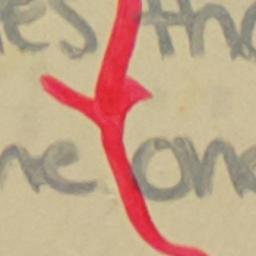 es tho
ne one